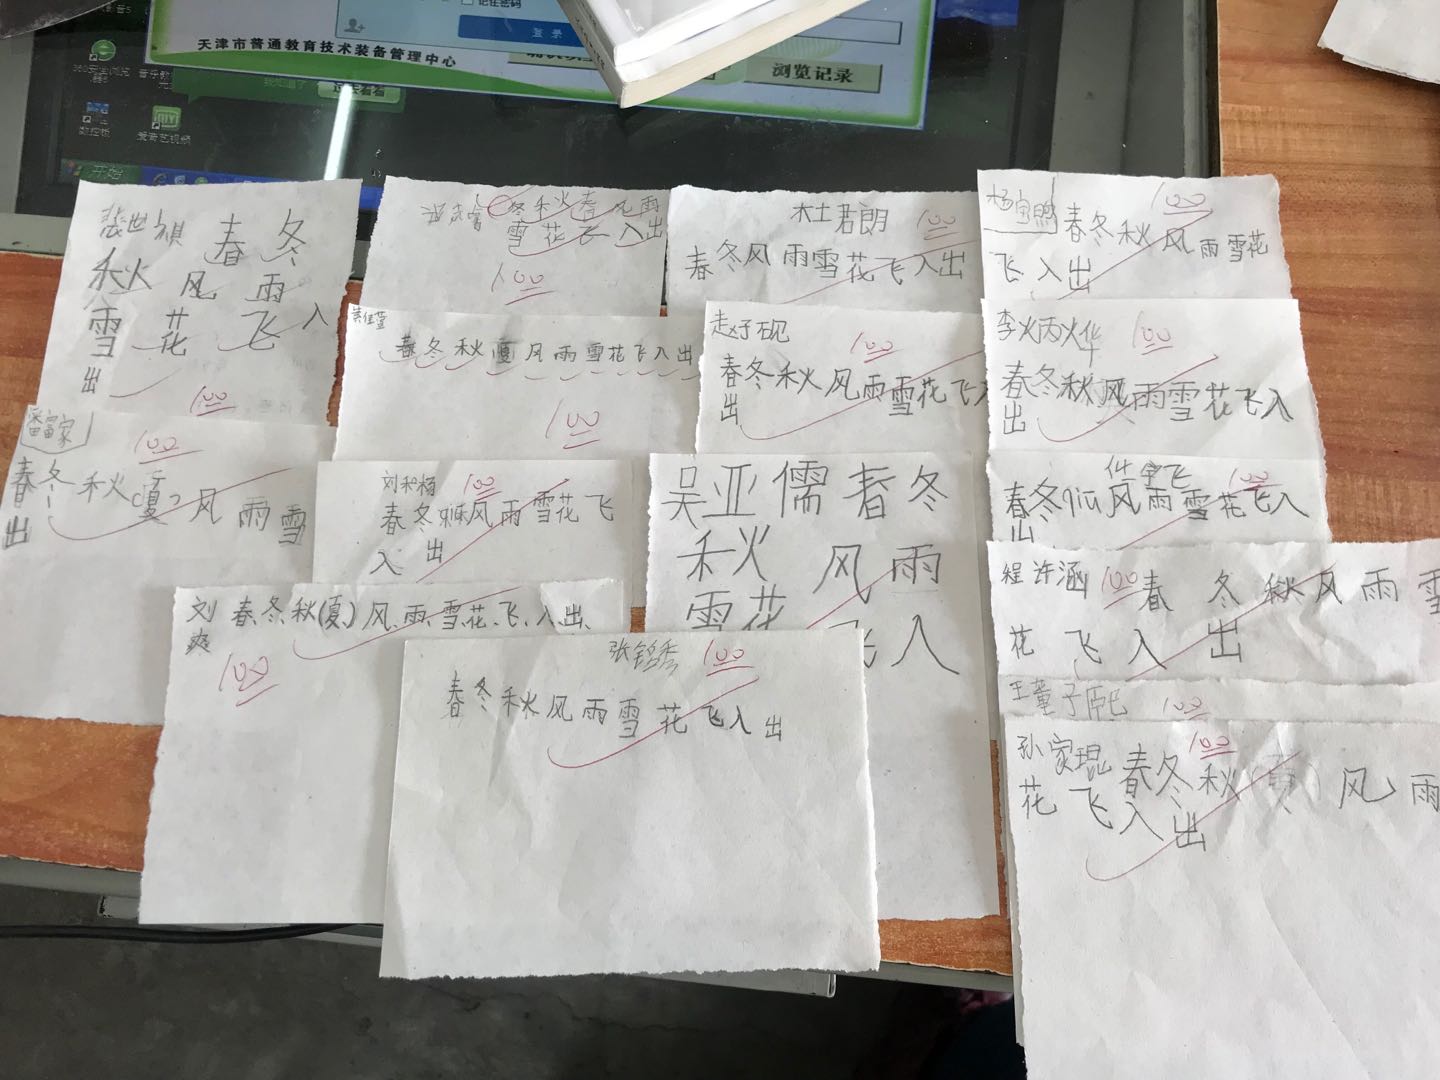 记住密码
登录
天津市普通教育技术装备管理中心
浏览记录
爱奇艺视频
开始
春 冬
秋 风 雨
雪 花 飞 入
出
100
冬秋春风雨
雪花飞入出
100
杜君朗
100
春冬风雨雪花飞入出
100
春冬秋风雨雪花
飞入出
春冬秋夏风雨雪花飞入出
100
赵子砚
100
春冬秋风雨雪花飞入
出
李炳烨
100
春冬秋风雨雪花飞入
出
潘富家
100
春冬秋(夏)风雨雪
出
刘积杨
100
春冬秋风雨雪花飞
入出
吴亚儒春冬
秋 风雨
雪花飞入
飞
100
春冬qiu风雨雪花飞入
出
程许涵
100
春冬秋风雨雪
花飞入出
刘爽
春、冬、秋(夏)风、雨、雪、花、飞、入、出、
100
张铭秀
100
春冬秋风雨雪花飞入出
王董子熙
100
孙家琨
100
春冬秋(夏)风雨
花飞入出